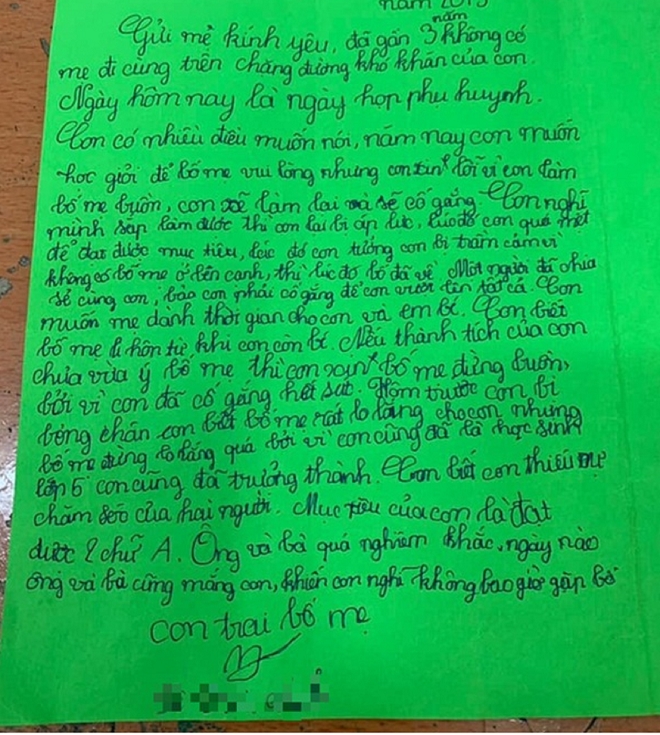 năm 2019
năm
Gửi mẹ kính yêu, đã gần 3 không có
mẹ đi cùng trên chặng đường khó khăn của con.
Ngày hôm nay là ngày họp phụ huynh.
Con có nhiều điều muốn nói, năm nay con muốn
học giỏi để bố mẹ vui lòng nhưng con xin lỗi vì con làm
bố mẹ buồn, con sẽ làm lại và sẽ cố gắng. Con nghĩ
mình sắp làm được thì con lại bị áp lực, lúc đó con quá mệt
để đạt được mục tiêu, lúc đó con tưởng con bị trầm cảm vì
không có bố mẹ ở bên cạnh, thì lúc đó bố đã về. Một người đã chia
sẻ cùng con, bảo con phải cố gắng để con vượt lên tất cả. Con
muốn mẹ dành thời gian cho con và em bé. Con biết
bố mẹ li hôn từ khi con còn bé. Nếu thành tích của con
chưa vừa ý bố mẹ thì con xin bố mẹ đừng buồn,
bởi vì con đã cố gắng hết sức. Hôm trước con bị
bỏng chân con biết bố mẹ rất lo lắng cho con nhưng
bố mẹ đừng lo lắng quá bởi vì con cũng đã là học sinh
lớp 5 con cũng đã trưởng thành. Con biết con thiếu sự
chăm sóc của hai người. Mục tiêu của con là đạt
được 2 chữ A. Ông và bà quá nghiêm khắc, ngày nào
ông và bà cũng mắng con, khiến con nghĩ không bao giờ gặp bố
con trai bố mẹ